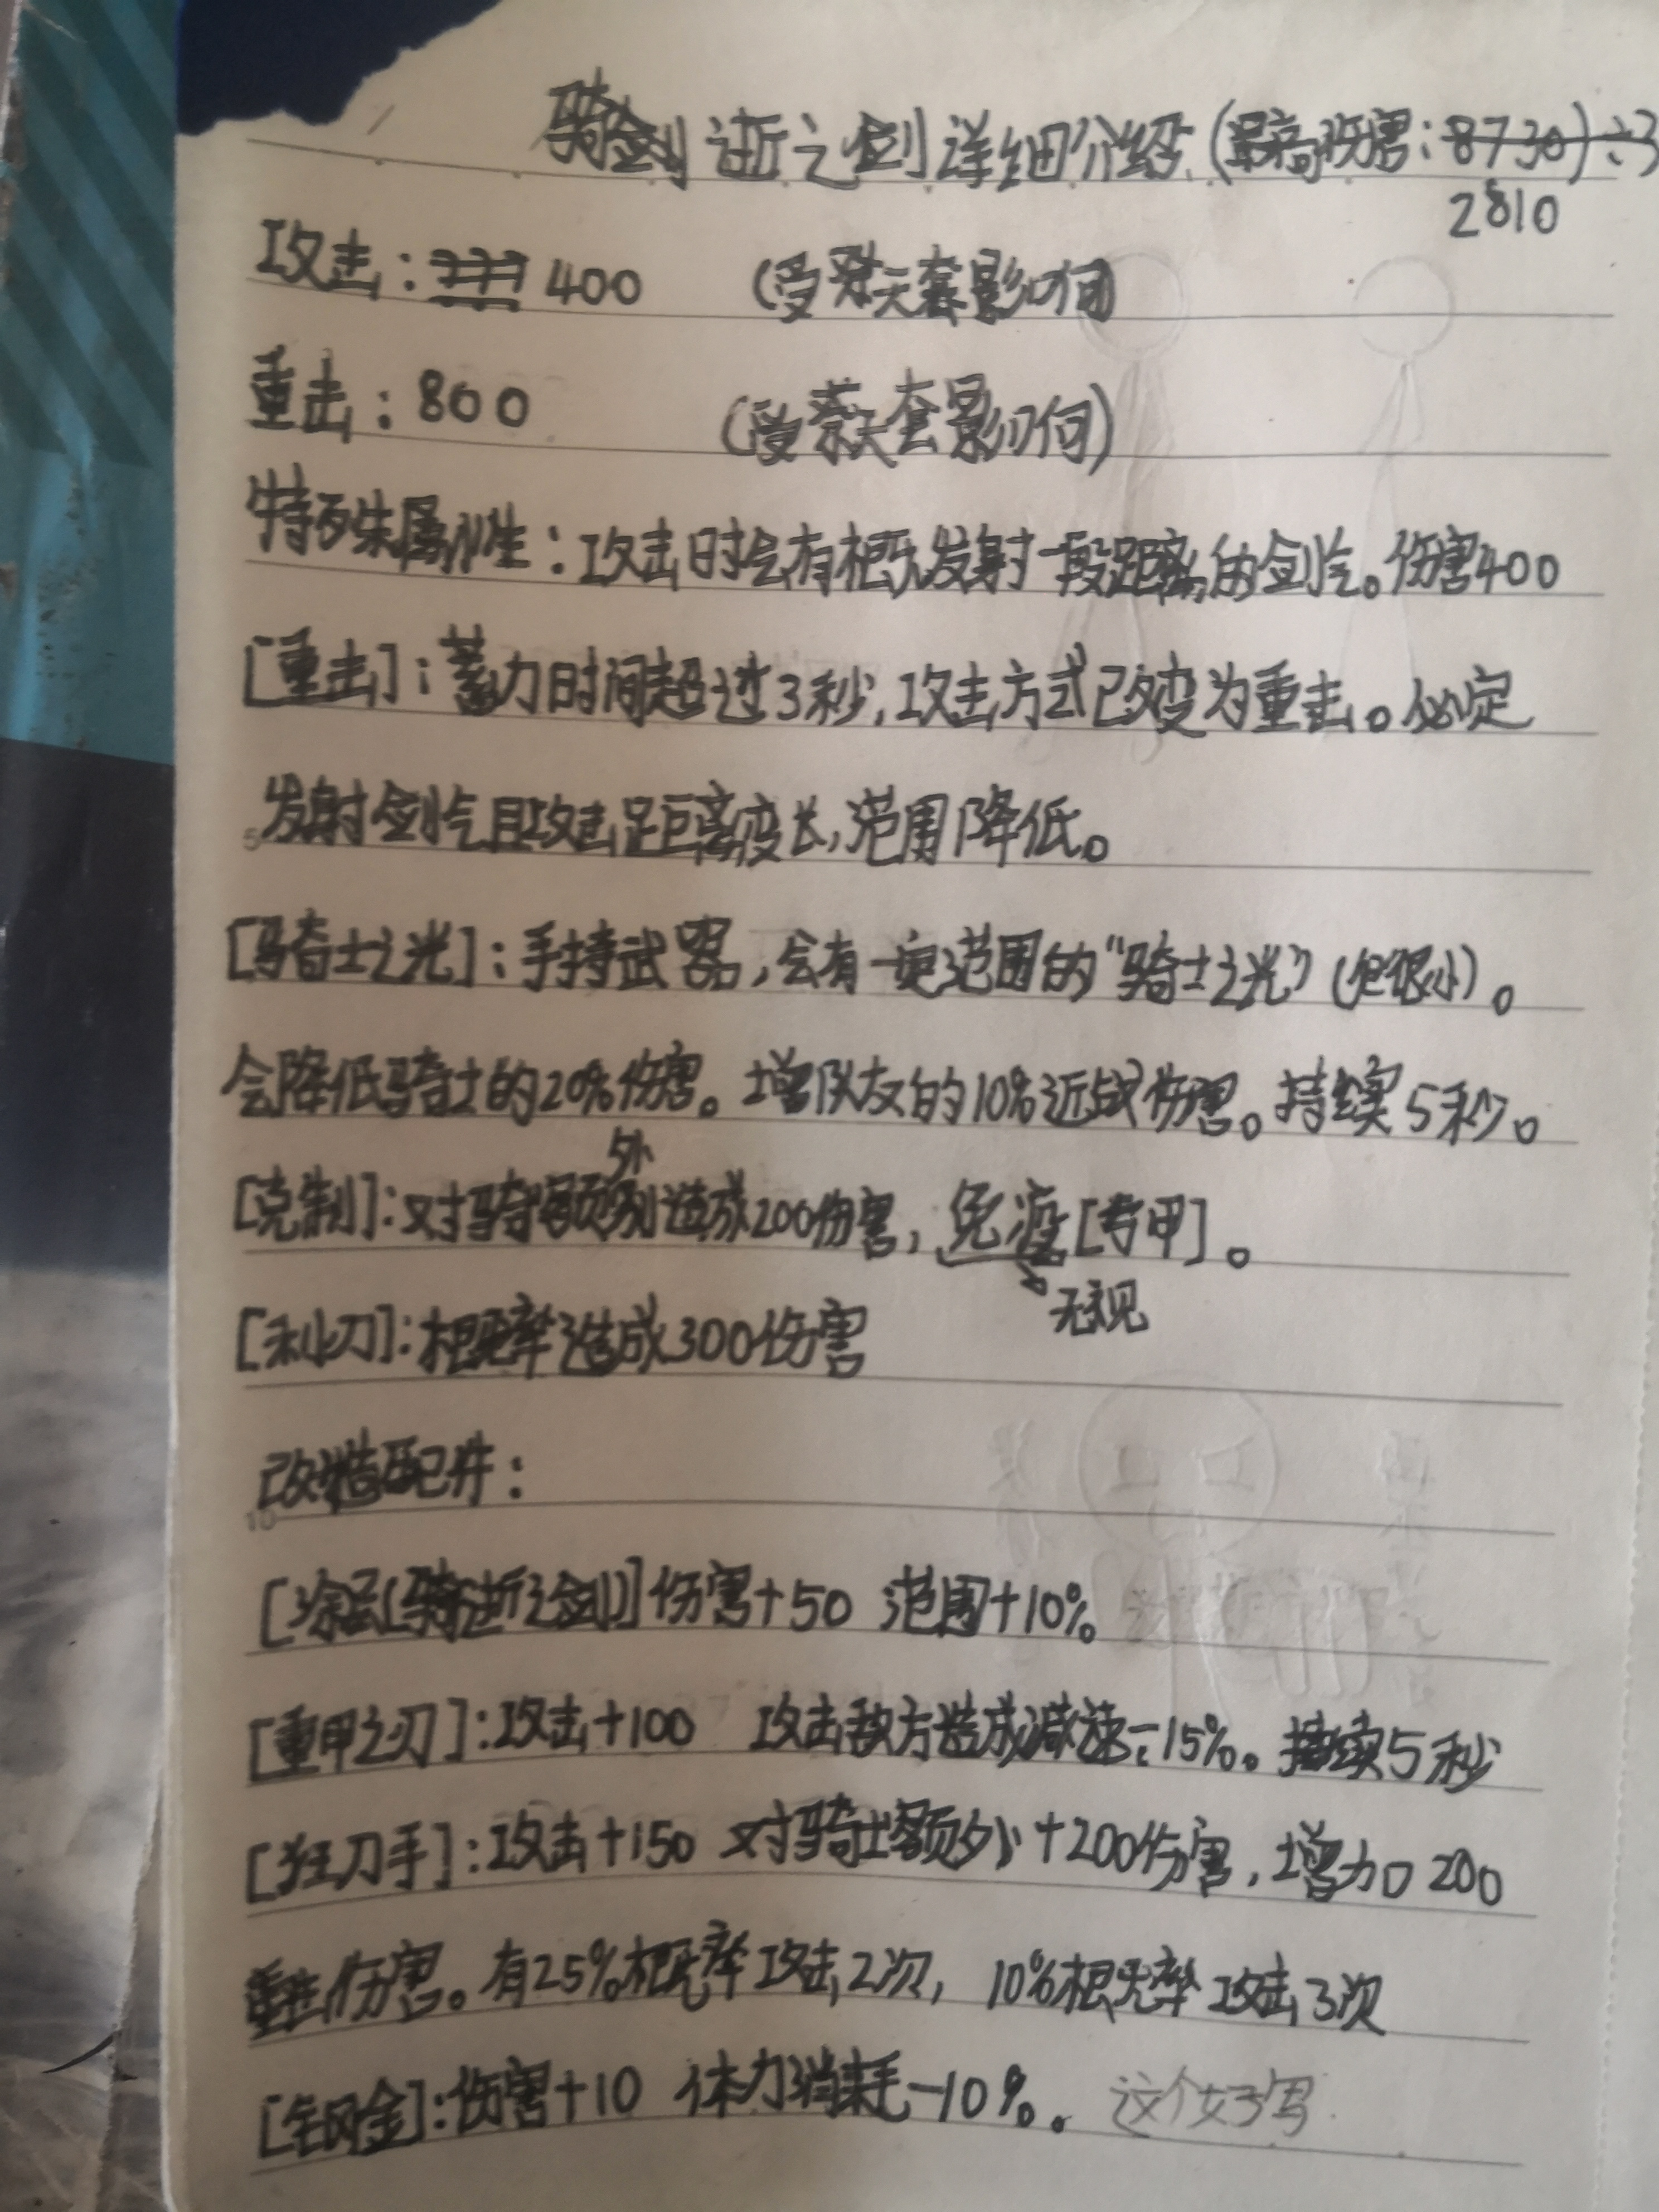 骑剑逝之剑详细介绍(最高伤害:8730)÷3
2810
攻击: 400 (受 天套影响
重击:800 (受 天套影响)
特殊属性:攻击时会有概率发射一段距离的剑气。伤害400
[重击]:蓄力时间超过3秒,攻击方式改变为重击。必定
发射剑气且攻击距离变长,范围降低。
[骑士之光]:手持武器,会有一定范围的“骑士之光”(但很小)。
会降低骑士的20%伤害。增队友的10%近战伤害。持续5秒。
外
[克制]:对骑士额 造成200伤害,免疫[ 甲]。
无视
[利刀]:概率造成300伤害
改造配件:
[涂层[骑逝之剑]]伤害+50 范围+10%
[重甲之刃]:攻击+100 攻击敌方造成减速-15%。持续5秒
[狂刀手]:攻击+150 对骑士额外+200伤害,增加200
重击伤害。有25%概率攻击2次,10%概率攻击3次
[钢金]:伤害+10 体力消耗-10%。 这个好写